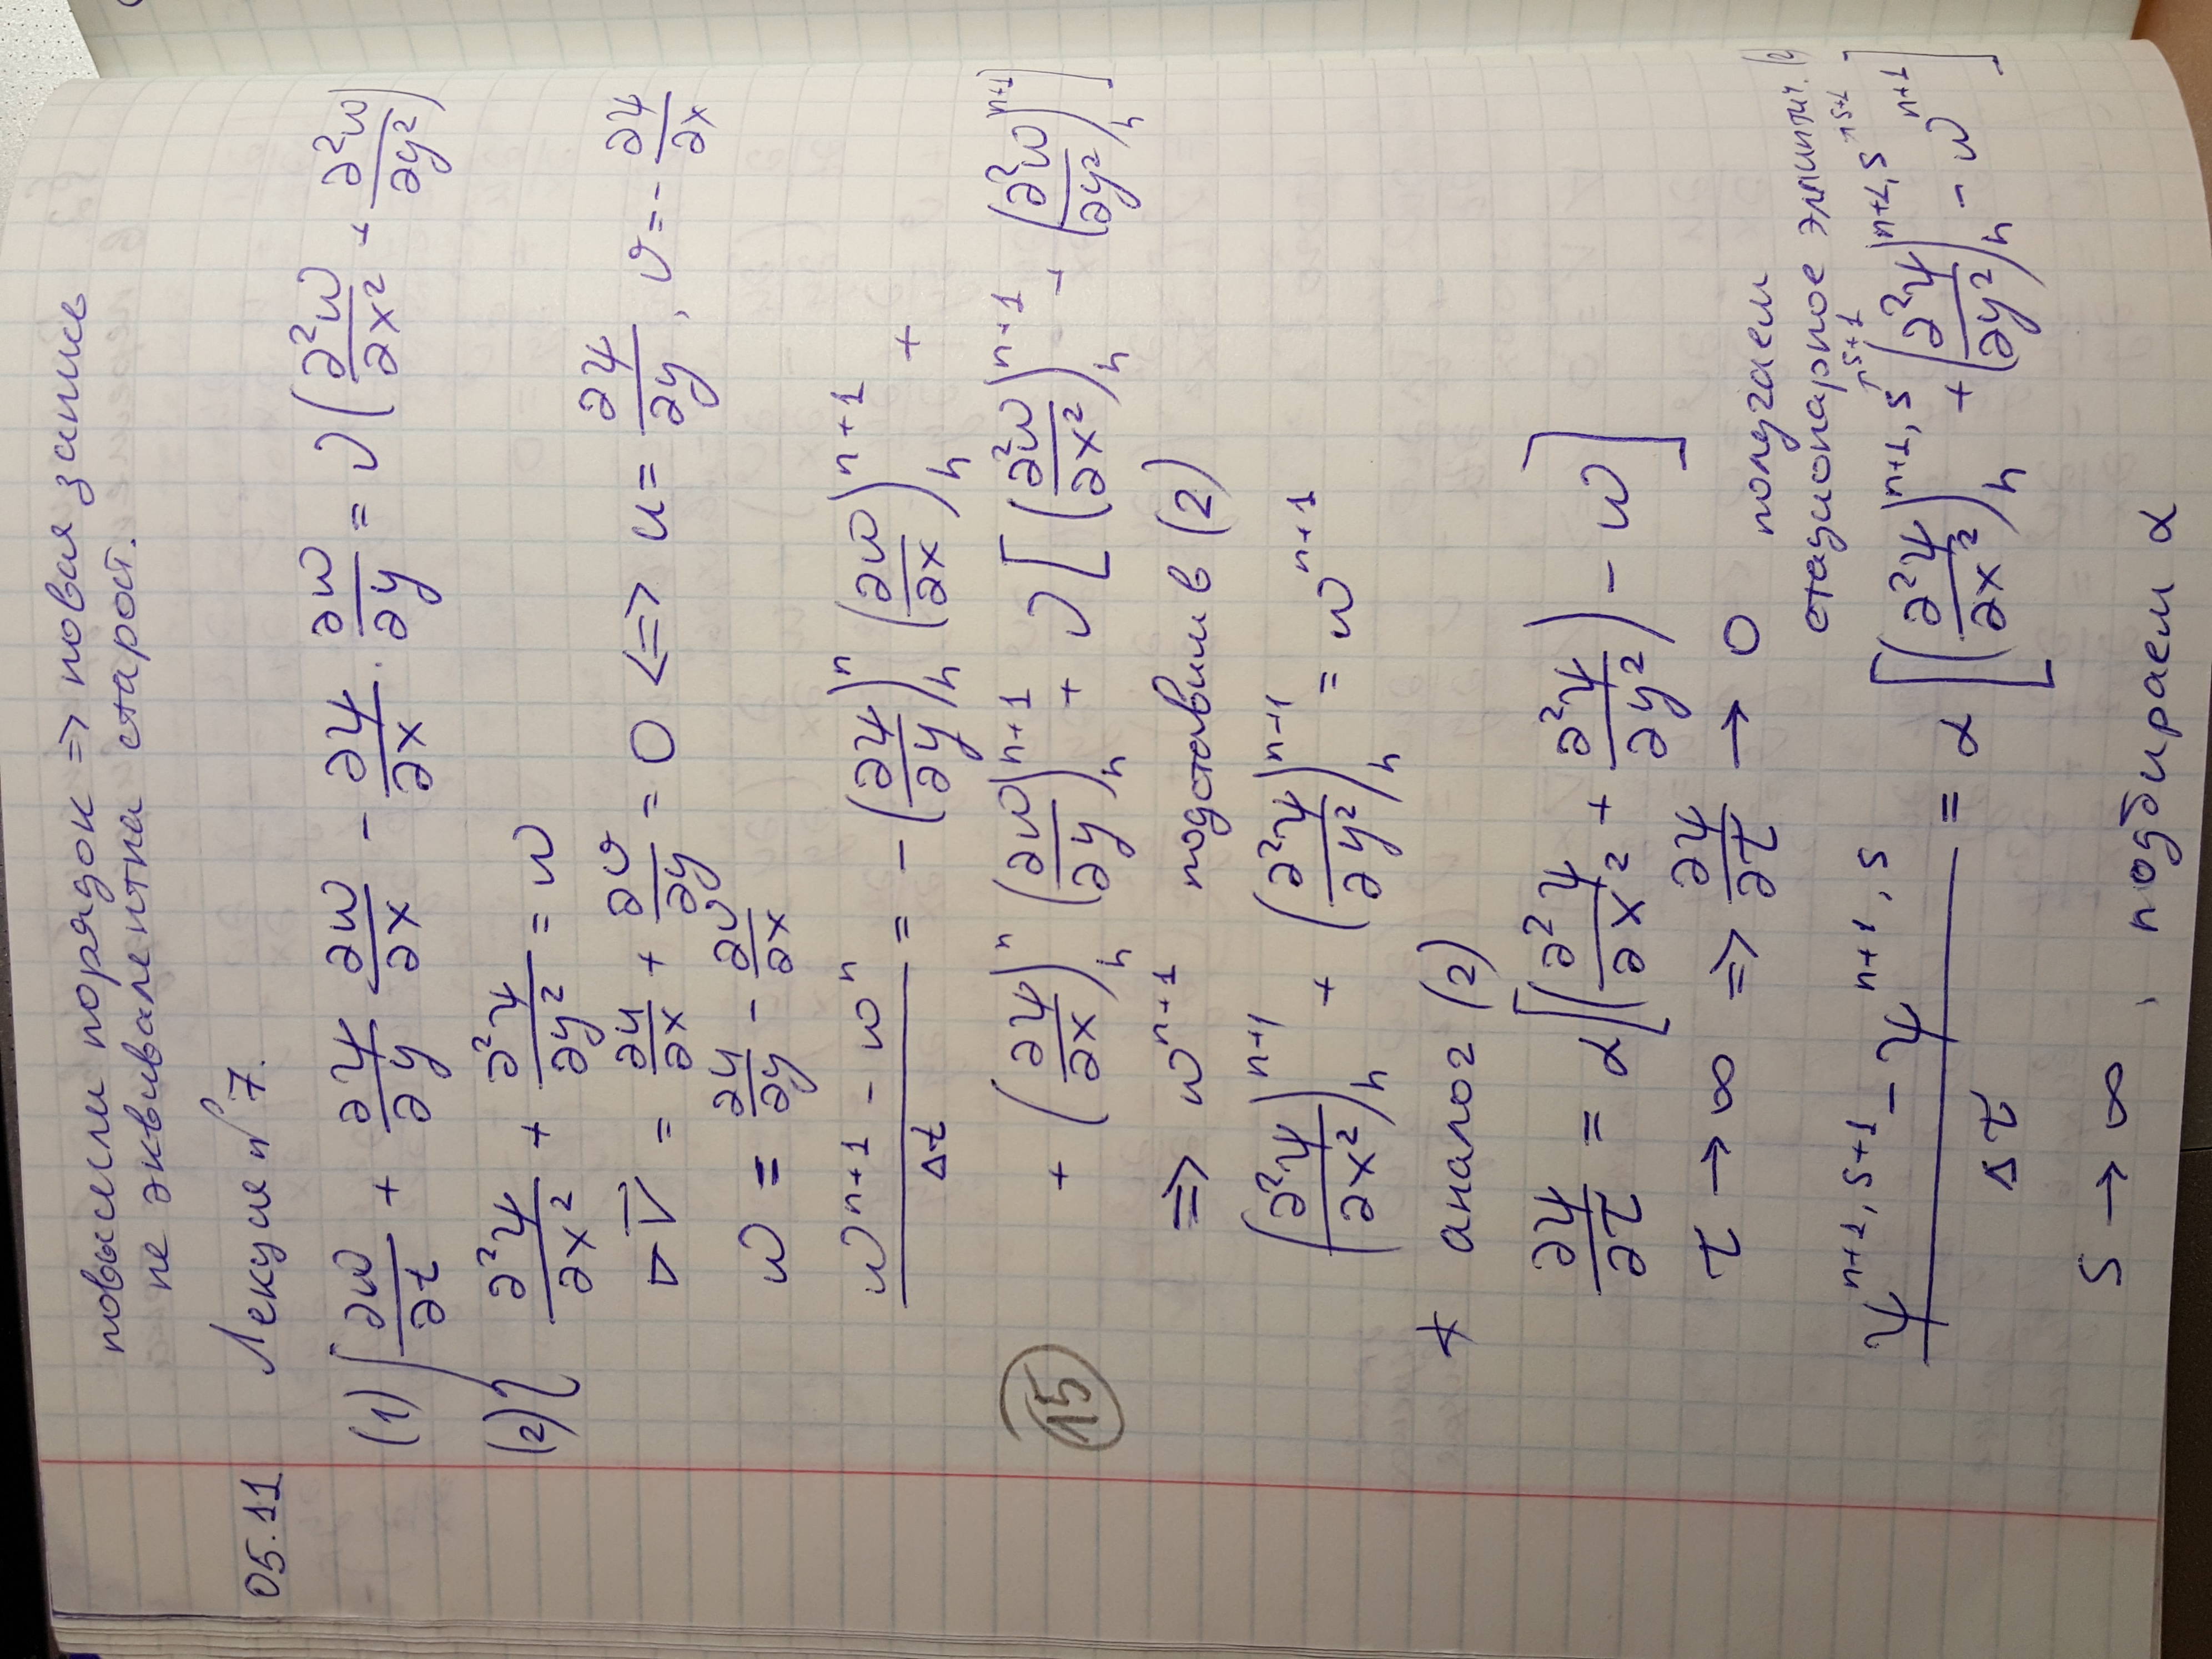 повысили порядок => новая запись
не эквивалентна старой.
05.11 Лекция №7.
(1) ∂ω/∂t + ∂ψ/∂y ∂ω/∂x - ∂ψ/∂x · ∂ω/∂y = ν(∂²ω/∂x² + ∂²ω/∂y²)
(2) { ∂²ψ/∂x² + ∂²ψ/∂y² = ω
∇V⃗ = ∂u/∂x + ∂v/∂y = 0 <=> u = ∂ψ/∂y, v = -∂ψ/∂x
ω = ∂u/∂y - ∂v/∂x
(ω^{n+1} - ω^n)/Δt = -(∂ψ/∂y)_h^n (∂ω/∂x)_h^{n+1} +
15 + (∂ψ/∂x)_h^n (∂ω/∂y)_h^{n+1} + ν[(∂²ω/∂x²)_h^{n+1} + (∂²ω/∂y²)_h^{n+1}]
=> ω^{n+1} подставим в (2)
(∂²ψ/∂x²)_h^{n+1} + (∂²ψ/∂y²)_h^{n+1} = ω^{n+1}
* аналог (2)
∂ψ/∂τ = α[(∂²ψ/∂x² + ∂²ψ/∂y²) - ω]
τ → ∞ => ∂ψ/∂τ → 0 получаем
стационарное эллиптич. (2)
(ψ^{n+1,s+1} - ψ^{n+1,s})/Δτ = α[(∂²ψ/∂x²)_h^{n+1,s ↗s+1} + (∂²ψ/∂y²)_h^{n+1,s ↗s+1} - ω^{n+1}]
s → ∞, подбираем α